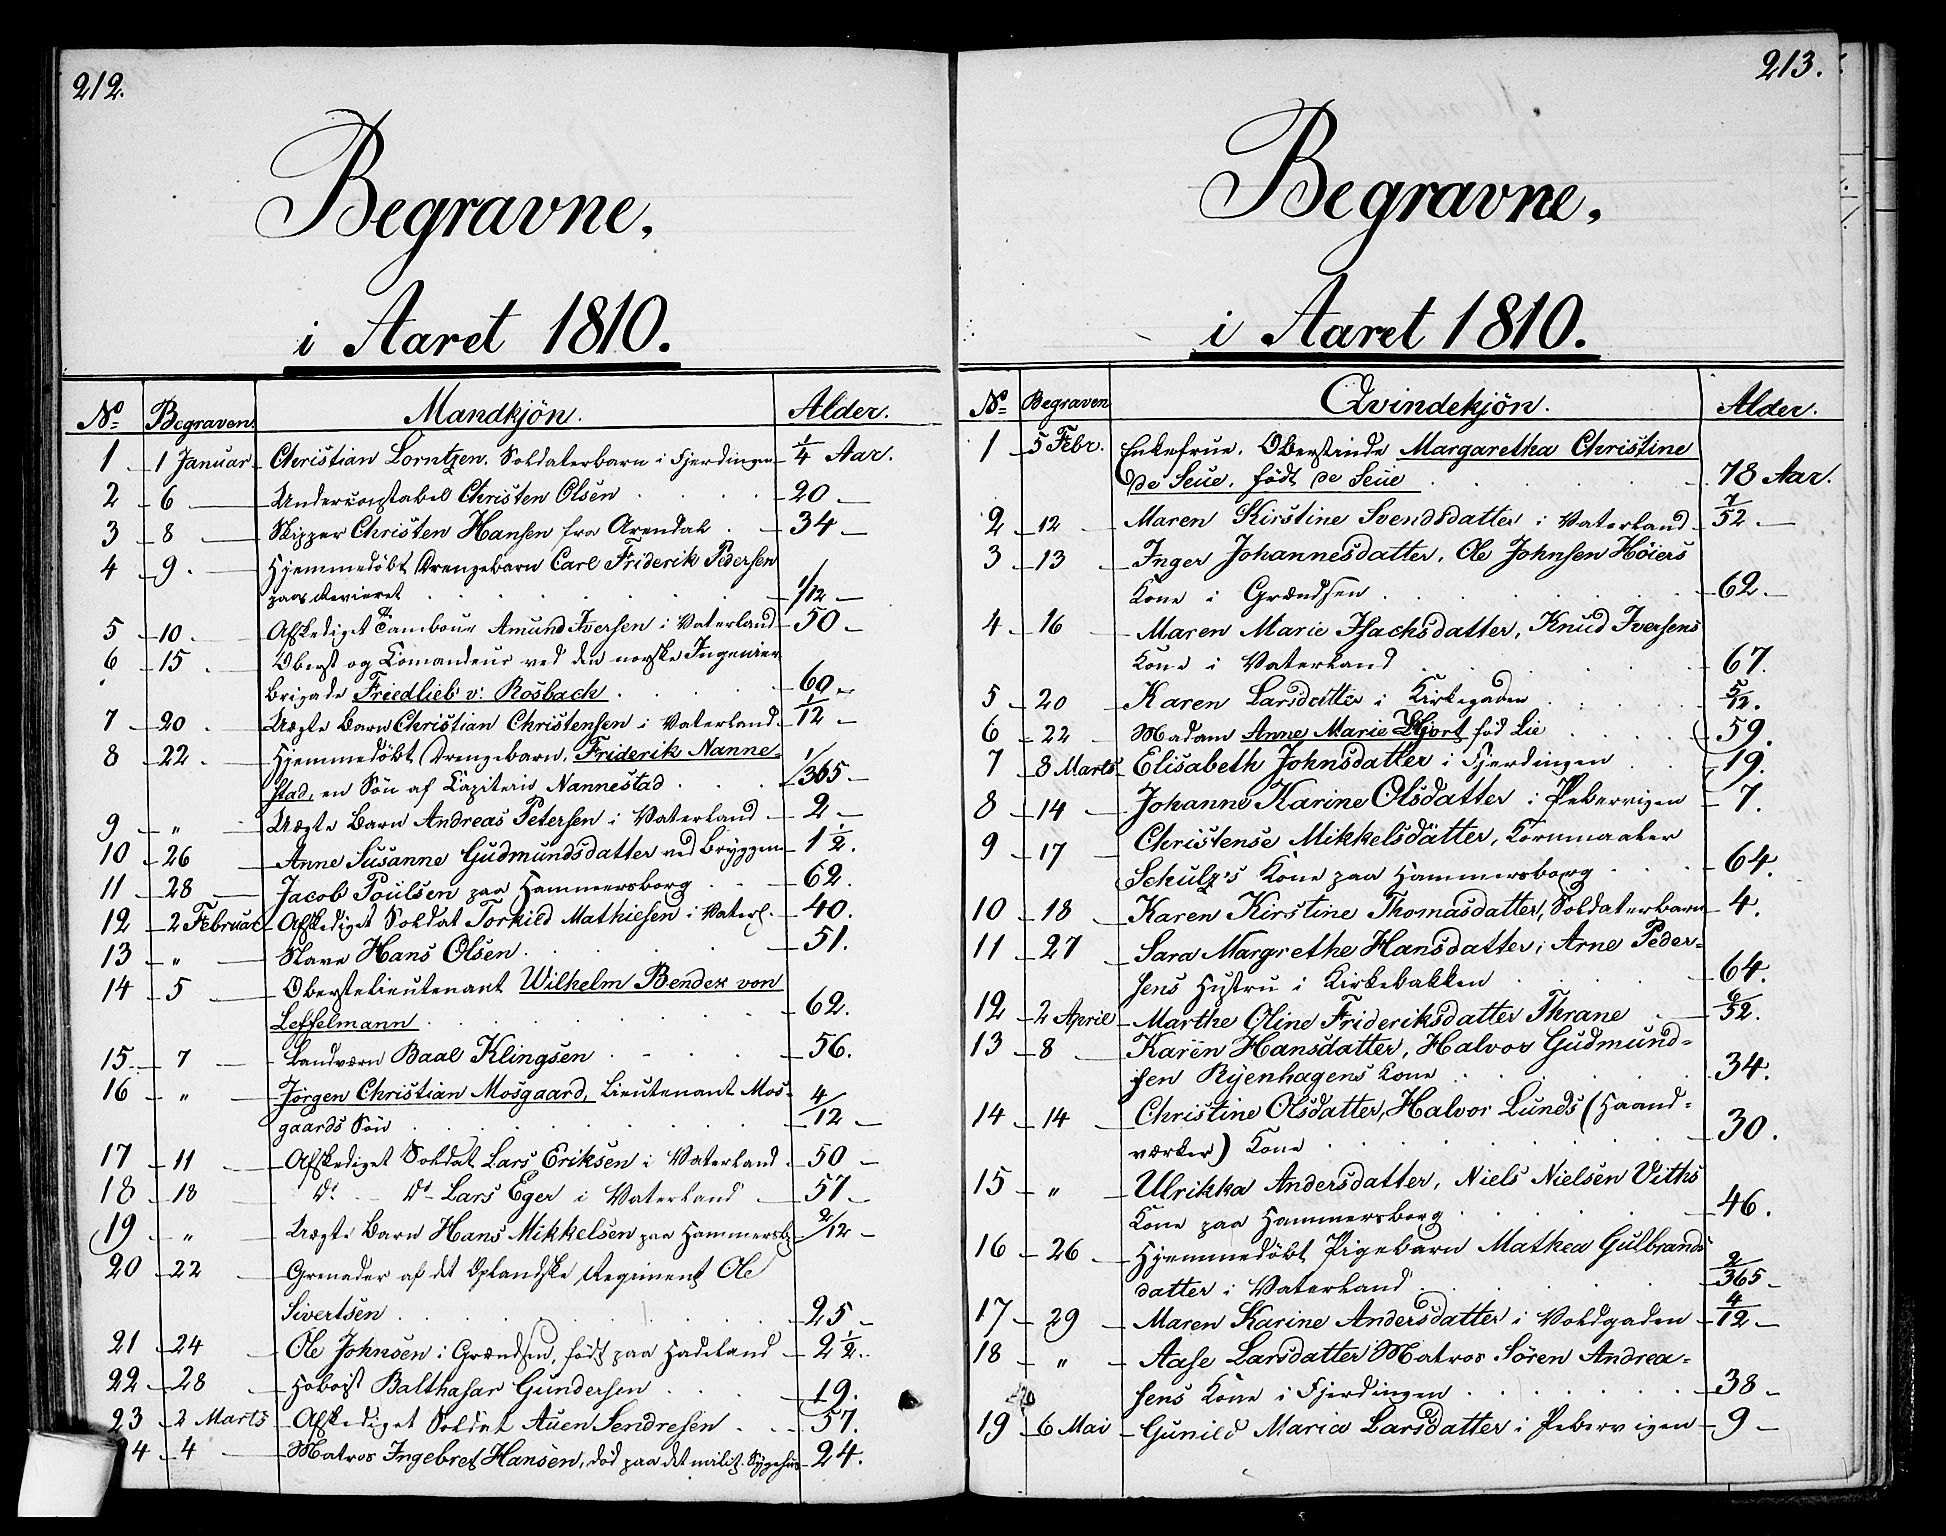 212.
Begravne,
i Aaret 1810.
No Begraven Mandkjön. Alder.
1 1 Januar Christian Lorntzen. Soldaterbarn i Fjerdingen 1/4 Aar.
2 6 Underconstabel Christen Olsen 20
3 8 Skipper Christen Hansen fra Arendal 34
4 9. Hjemmedöbt Drengebarn Carl Friderik Pedersen
paa Revieret 1/12
5 10. Afskediget Tambour Amund Iversen i Vaterland 50
6 15 Oberst og Comandeur ved den norske Ingenieur
Brigade Friedlieb v: Rosbach 60
7 20 Uægte Barn Christian Christensen i Vaterland 1/12
8 22 Hjemmedöbt Drengebarn, Friderik Nanne-
stad, en Sön af Capitain Nannestad 1/365
9 " Uægte Barn Andreas Petersen i Vaterland 2
10 26 Anne Susanne Gudmundsdatter ved Bryggen 1 1/2.
11 28 Jacob Poulsen paa Hammersborg 62.
12 2 Februar Afskediget Soldat Torkild Mathiesen i Vaterl. 40.
13 " Slave Hans Olsen. 51.
14 5 Oberstelieutenant Wilhelm Bender von
Leffelmann 62.
15 7 Landværn Baal Klingsen 56.
16 " Jørgen Christian Mosgaard, Lieutenant Mos-
gaards Sön 4/12
17 11 Afskediget Soldat Lars Eriksen i Vaterland 50
18 18 Dt Dt Lars Eger i Vaterland 57
19 " Uægte Barn Hans Mikkelsen paa Hammersb. 2/12
20 22 Grenader af det Oplandske Regiment Ole
Sivertsen 25
21 24 Ole Johnsen i Grændsen, födt paa Hadeland 2 1/2.
22 28 Hoboist Balthasar Gundersen 19.
23 2 Marts Afskediget Soldat Auen Sendresen 57.
24 4 Matros Ingebret Hansen, död paa det milit. Sygehus 24.
213.
Begravne,
i Aaret 1810.
No Begraven Qvindekjön. Alder.
1 5 Febr. Enkefrue. Oberstinde Margaretha Christine
de Seue, födt de Seue 78 Aar.
2 12 Maren Kirstine Svendsdatter i Vaterland 7/52
3 13 Inger Johannesdatter, Ole Johnsen Höiers
Kone i Grændsen 62.
4 16 Maren Marie Isachsdatter, Knud Iversens
Kone i Vaterland 67.
5 20 Karen Larsdatter i Kirkegaden 5/12.
6 22 Madam Anne Marie Hjort föd Lie 59.
7 8 Marts Elisabeth Johnsdatter i Fjerdingen 19.
8 14 Johanne Karine Olsdatter i Pebervigen 7.
9 17 Christense Mikkelsdatter, Kornmaaler
Schulz's Kone paa Hammersborg 64.
10 18 Karen Kirstine Thomasdatter, Soldaterbarn 4.
11 27 Sara Margrethe Hansdatter, Arne Peder-
sens Hustru i Kirkebakken 64.
12 2 April Marthe Oline Frideriksdatter Thrane 6/52.
13 8 Karen Hansdatter, Halvor Gudmund-
sen Ryenhagens Kone 34.
14 14 Christine Olsdatter, Halvor Lunds (Haand-
værker) Kone 30.
15 " Ulrikka Andersdatter, Niels Nielsen Viths
Kone paa Hammersborg 46.
16 26 Hjemmedöbt Pigebarn Mathea Gulbrands
datter i Vaterland 2/365
17 29 Maren Karine Andersdatter i Voldgaden 4/12
18 " Aase Larsdatter Matros Sören Andrea-
sens Kone i Fjerdingen 38
19 6 Mai Gunild Maria Larsdatter i Pebervigen 9